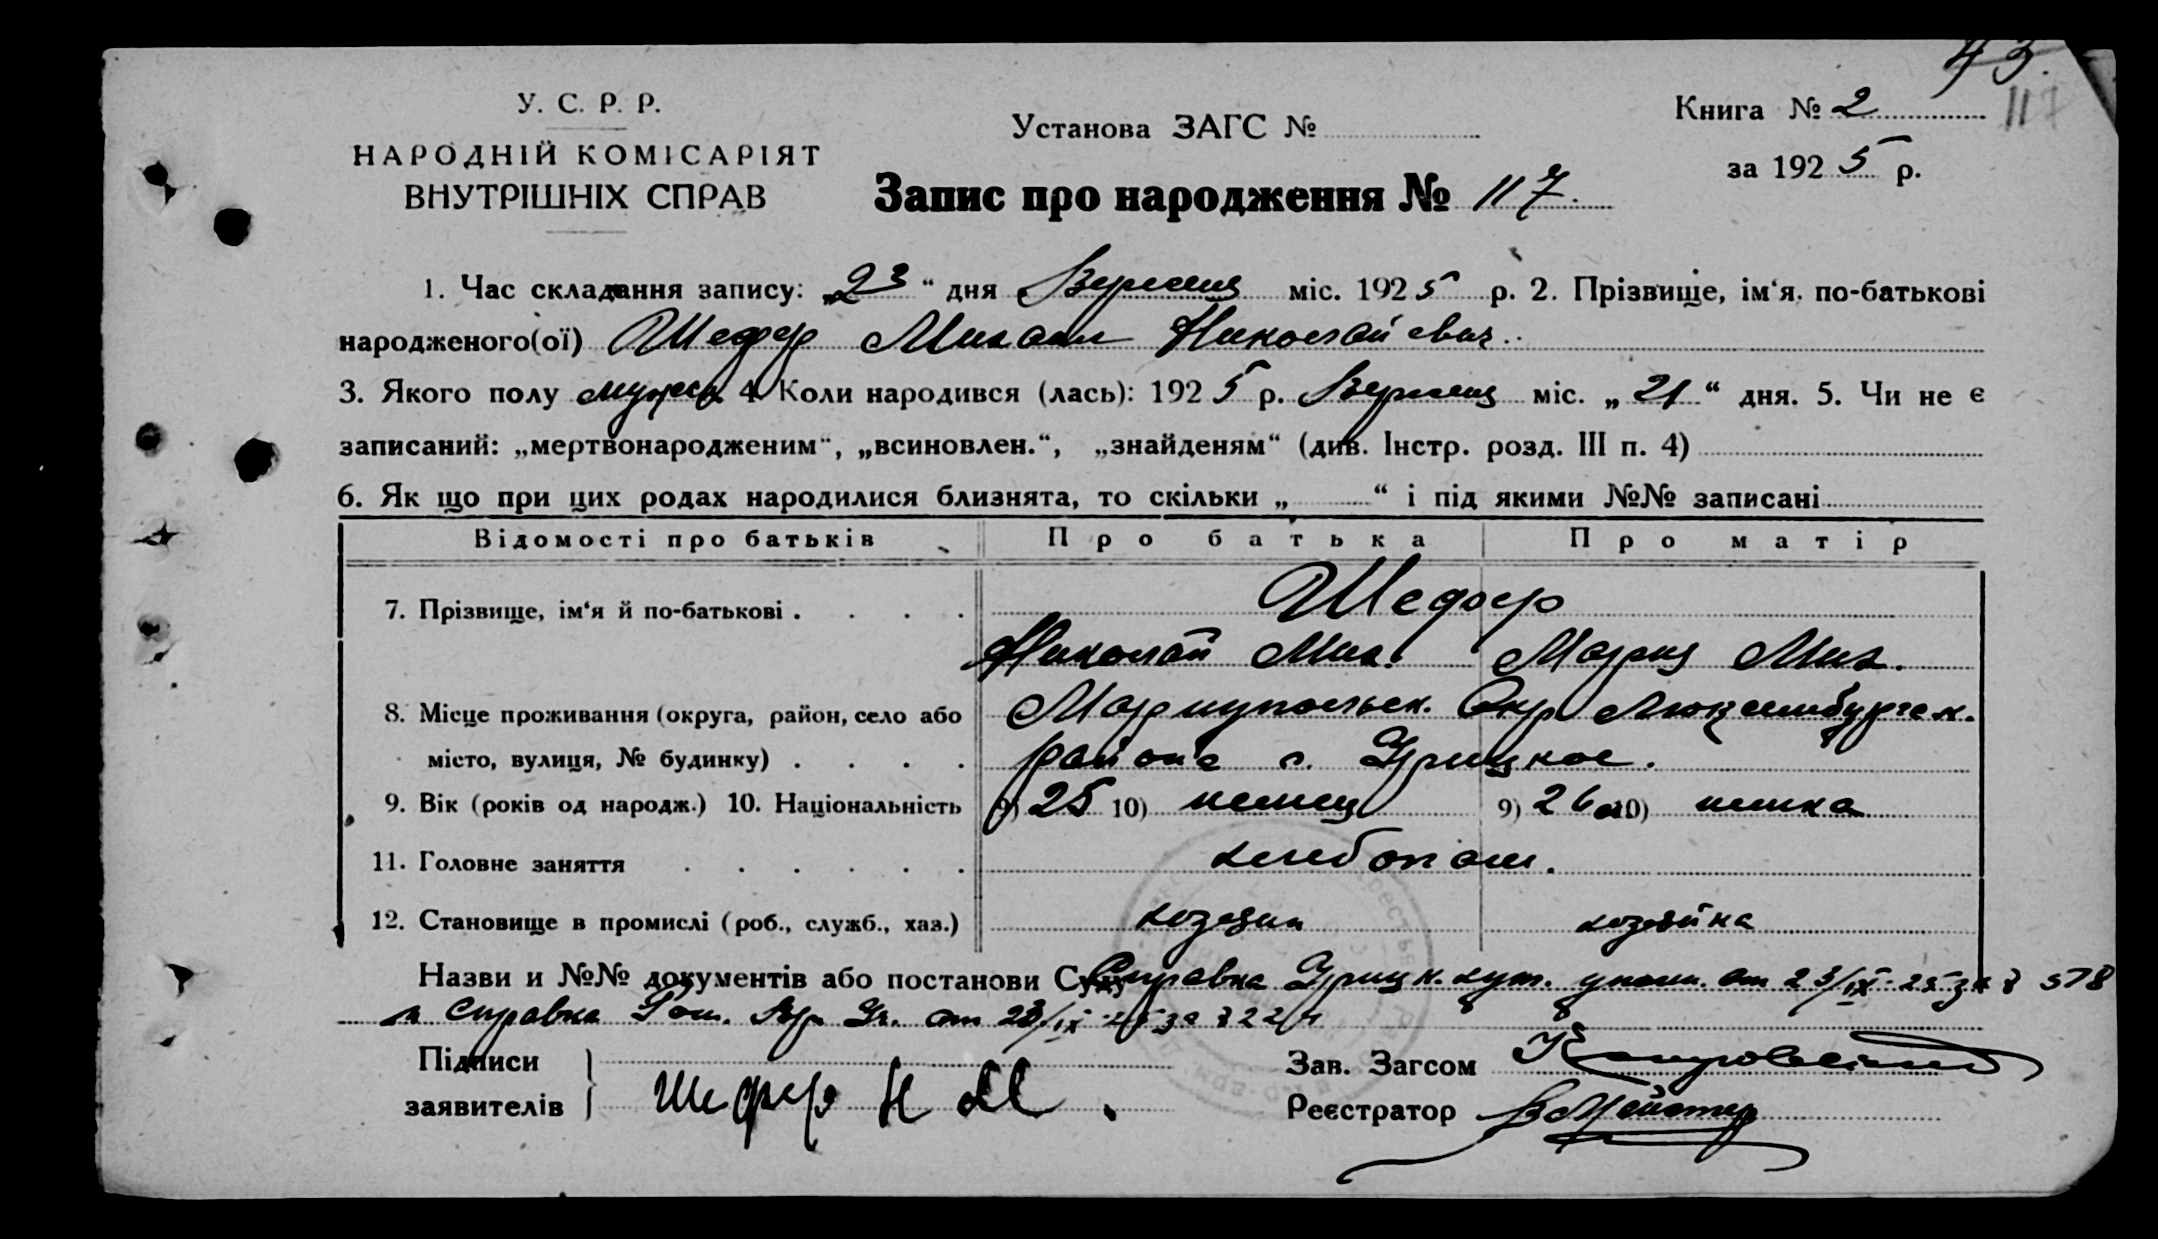 43.
117
У. С. Р. Р.
НАРОДНІЙ КОМІСАРІЯТ
ВНУТРІШНІХ СПРАВ
Установа ЗАГС №
Книга № 2
за 1925 р.
Запис про народження № 117.
1. Час складання запису: „23“ дня Вересня міс. 1925 р. 2. Прізвище, ім‘я, по-батькові
народженого(ої) Шефер Михаил Николайевич.
3. Якого полу мужск. 4. Коли народився (лась): 1925 р. Вересня міс. „21“ дня. 5. Чи не є
записаний: „мертвонародженим“, „всиновлен.“, „знайденям“ (див. Інстр. розд. III п. 4)
6. Як що при цих родах народилися близнята, то скільки „ “ і під якими №№ записані
Відомості про батьків Про батька Про матір
7. Прізвище, ім‘я й по-батькові . . . . Шефер
Николай Мих. Мария Мих.
8. Місце проживання (округа, район, село або Мариупольск. Окр. Люксембургск.
місто, вулиця, № будинку) . . . . района с. Урицкое.
9. Вік (років од народж.) 10. Національність 9) 25 10) немец 9) 26 10) немка
11. Головне заняття . . . . . . хлебопаш.
12. Становище в промислі (роб., служб., хаз.) хозяин хозяйка
Назви и №№ документів або постанови Суду Справка Урицк. хут. уполн. от 23/IX-25 за № 578
и справка от 23/IX-25 за №
Підписи
заявителів } Шефер Н М.
Зав. Загсом
Реєстратор